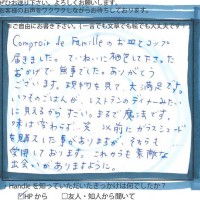 ぜひお送り下さい。よろしくお願いします
お客様のお声をワクワクしながらお待ちしております。
ご自由にお書き下さい（一言でも文章でも絵でも大丈夫です！
Comptoir de Familleのお皿とコップ
届きました。ていねいに梱包して下さった
おかげで無事でした。ありがとう
ございます。現物を見て、大満足です。
いつものごはんがレストランのディナーみたいに
見えるから すごいですね。魔法です。
味は変わらず 笑 以前にガラスミュート
を購入した事がありますが、そちらも
愛用しております。これからも素敵な
出会いがありますように。
Handleを知っていただいたきっかけは何でしたか？
☑HPから □友人・知人から聞いて